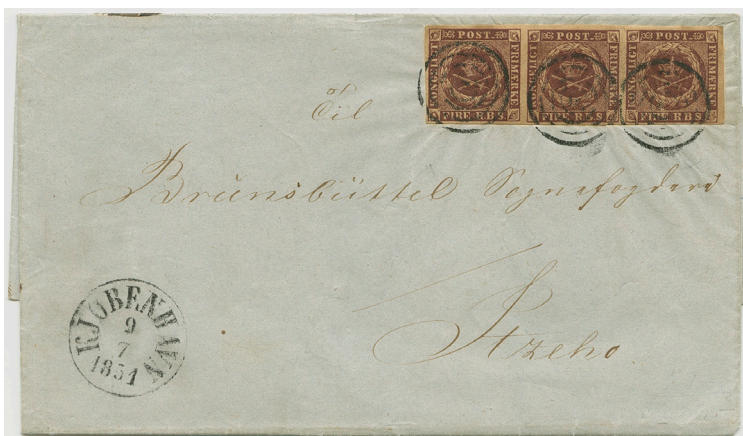 KONGELIGT POST FRIMÆRKE FIRE R.B.S. KONGELIGT POST FRIMÆRKE FIRE R.B.S. KONGELIGT POST FRIMÆRKE FIRE R.B.S.
Til
Brünsbüttel Sognefogderi
Itzeho
KJØBENHAVN
9
7
1851